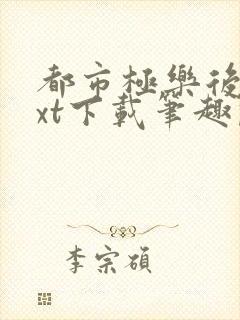 都市極樂後
xt下載筆趣
李宗碩